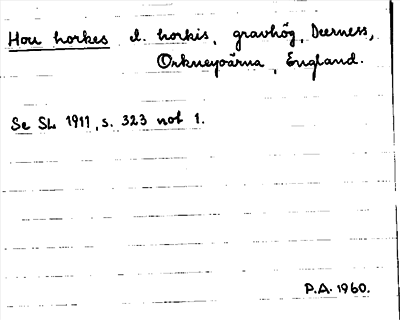 Hou horkes el. horkis, gravhög, Deerness,
Orkneyöarna, England.
Se SL 1911, s. 323 not 1.
P.A. 1960.